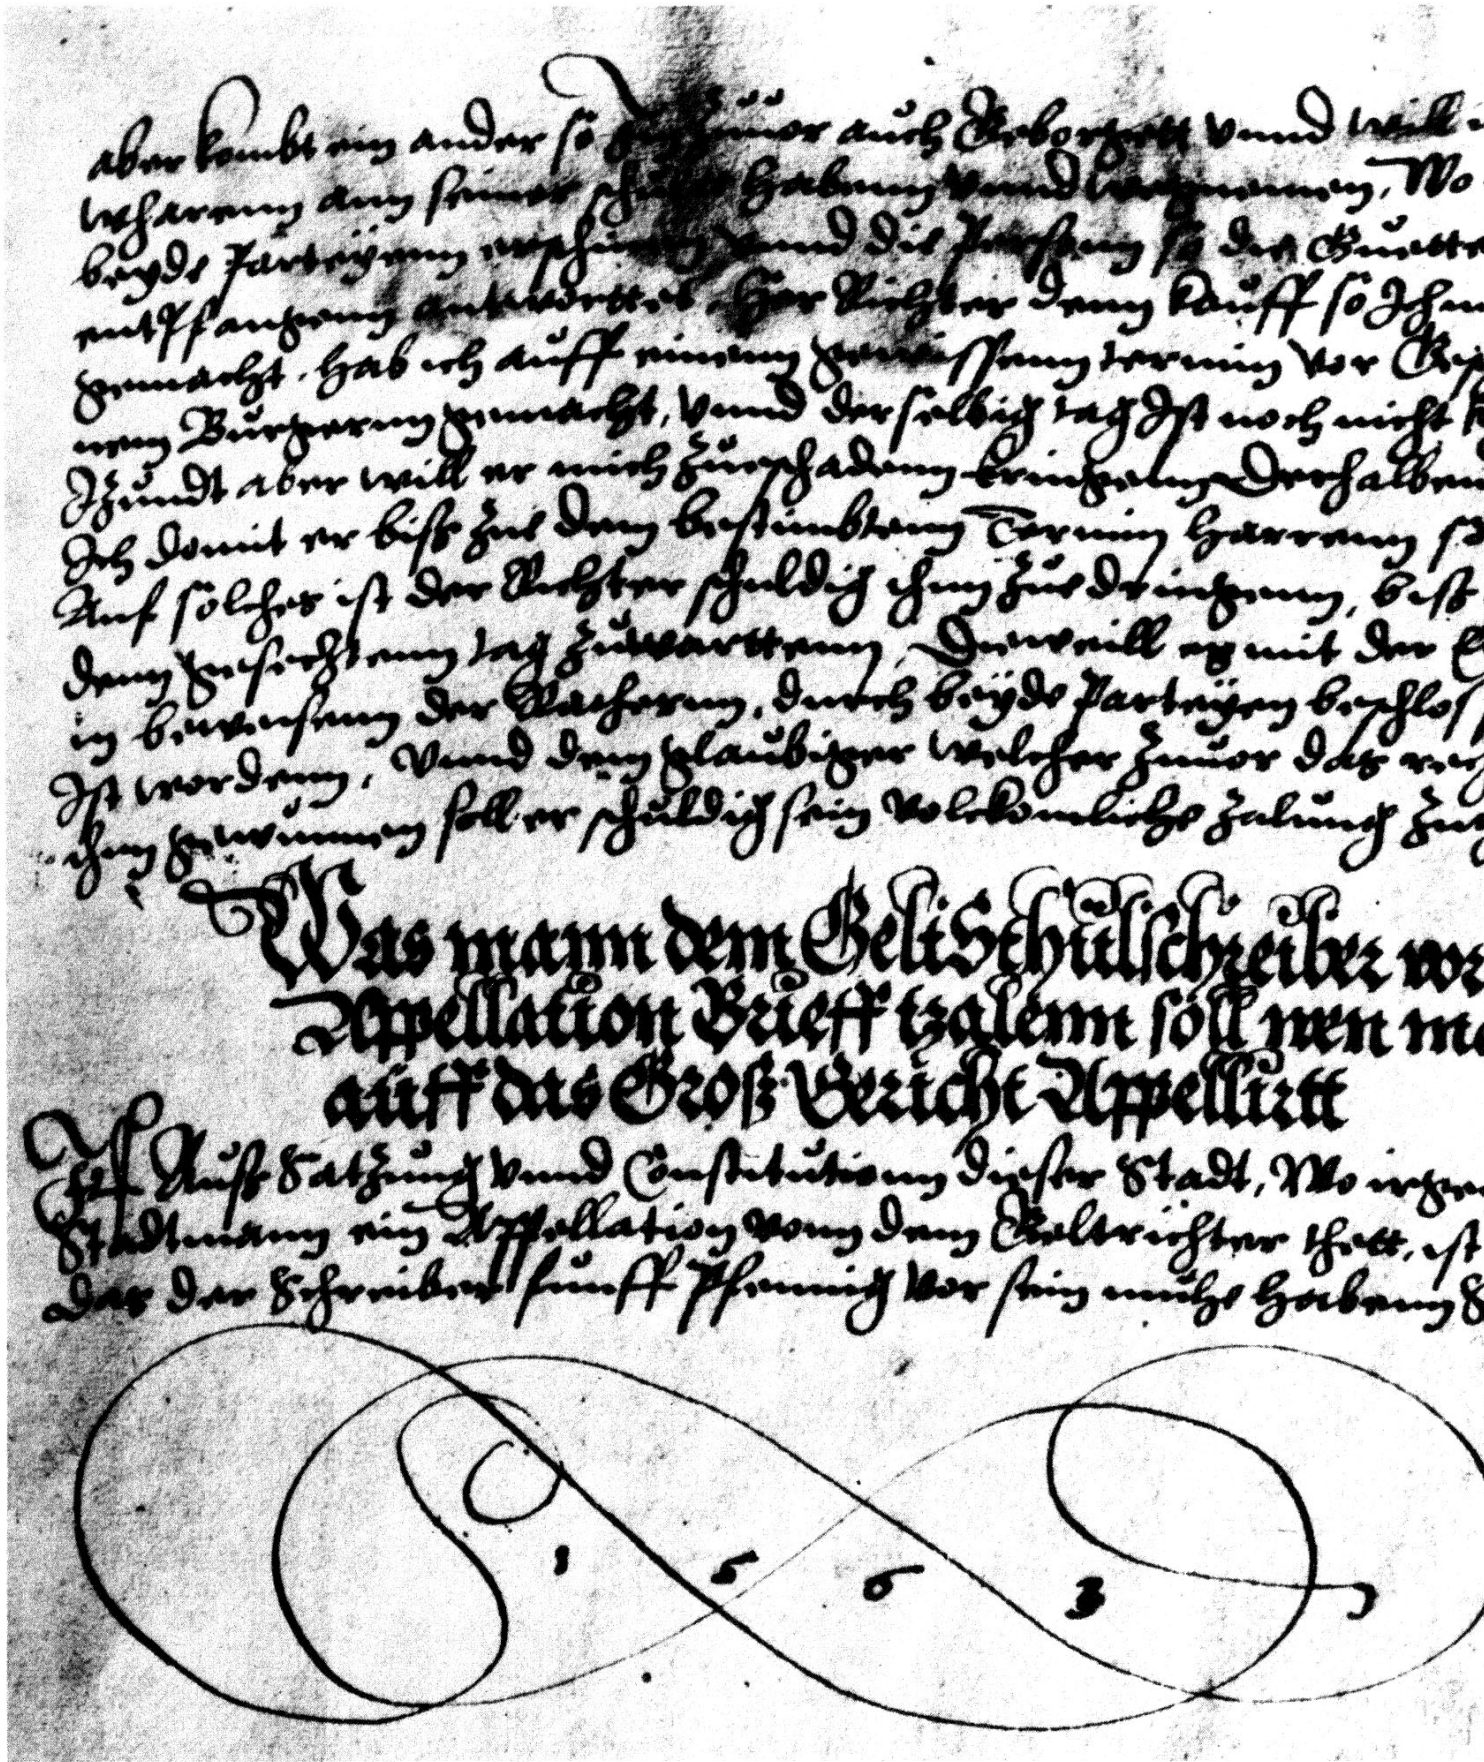 aber kombt ein ander so zuuor auch Geborgett vnnd will
wharenn ann seiner schuldt habenn vnnd wegnemen, Wo
beyde Parteyenn erscheinen vnnd die Person so die Guette
entpfangenn antworttet Her Richter denn kauff so Ich
gemacht, hab ich auff einenn gewissenn termin vor
nem Burgernn gemacht, vnnd derselbig tag Ist noch nicht
Izundt aber will er mich zueschadenn bringenn Derhalben
Ich domit er biß zue dem bestimbtenn Termin harrenn
Auf solches ist der Richter schuldig ihm zue dringenn, biß
denn gesechtenn tag zuwarttenn, Dieweill es mit der
in beweisenn der Rathernn, durch beyde Parteyen
Ist wordenn, Vnnd dem glaubiger welcher zuuor das
ihm gewunnen soll er schuldig sein volckomliche zalung
Was mann dem GeltSchulschreiber vor
Appellation Brieff tzalenn soll wen
auff das Groß Gericht Appellirtt
Auß Satzung vnnd Constitutionn dieser Stadt, Wo
Stadtmann ein Appellation vonn dem Geltrichter thett, ist
das der Schreiber funff Pfennig vor sein muhe habenn
1 5 6 3